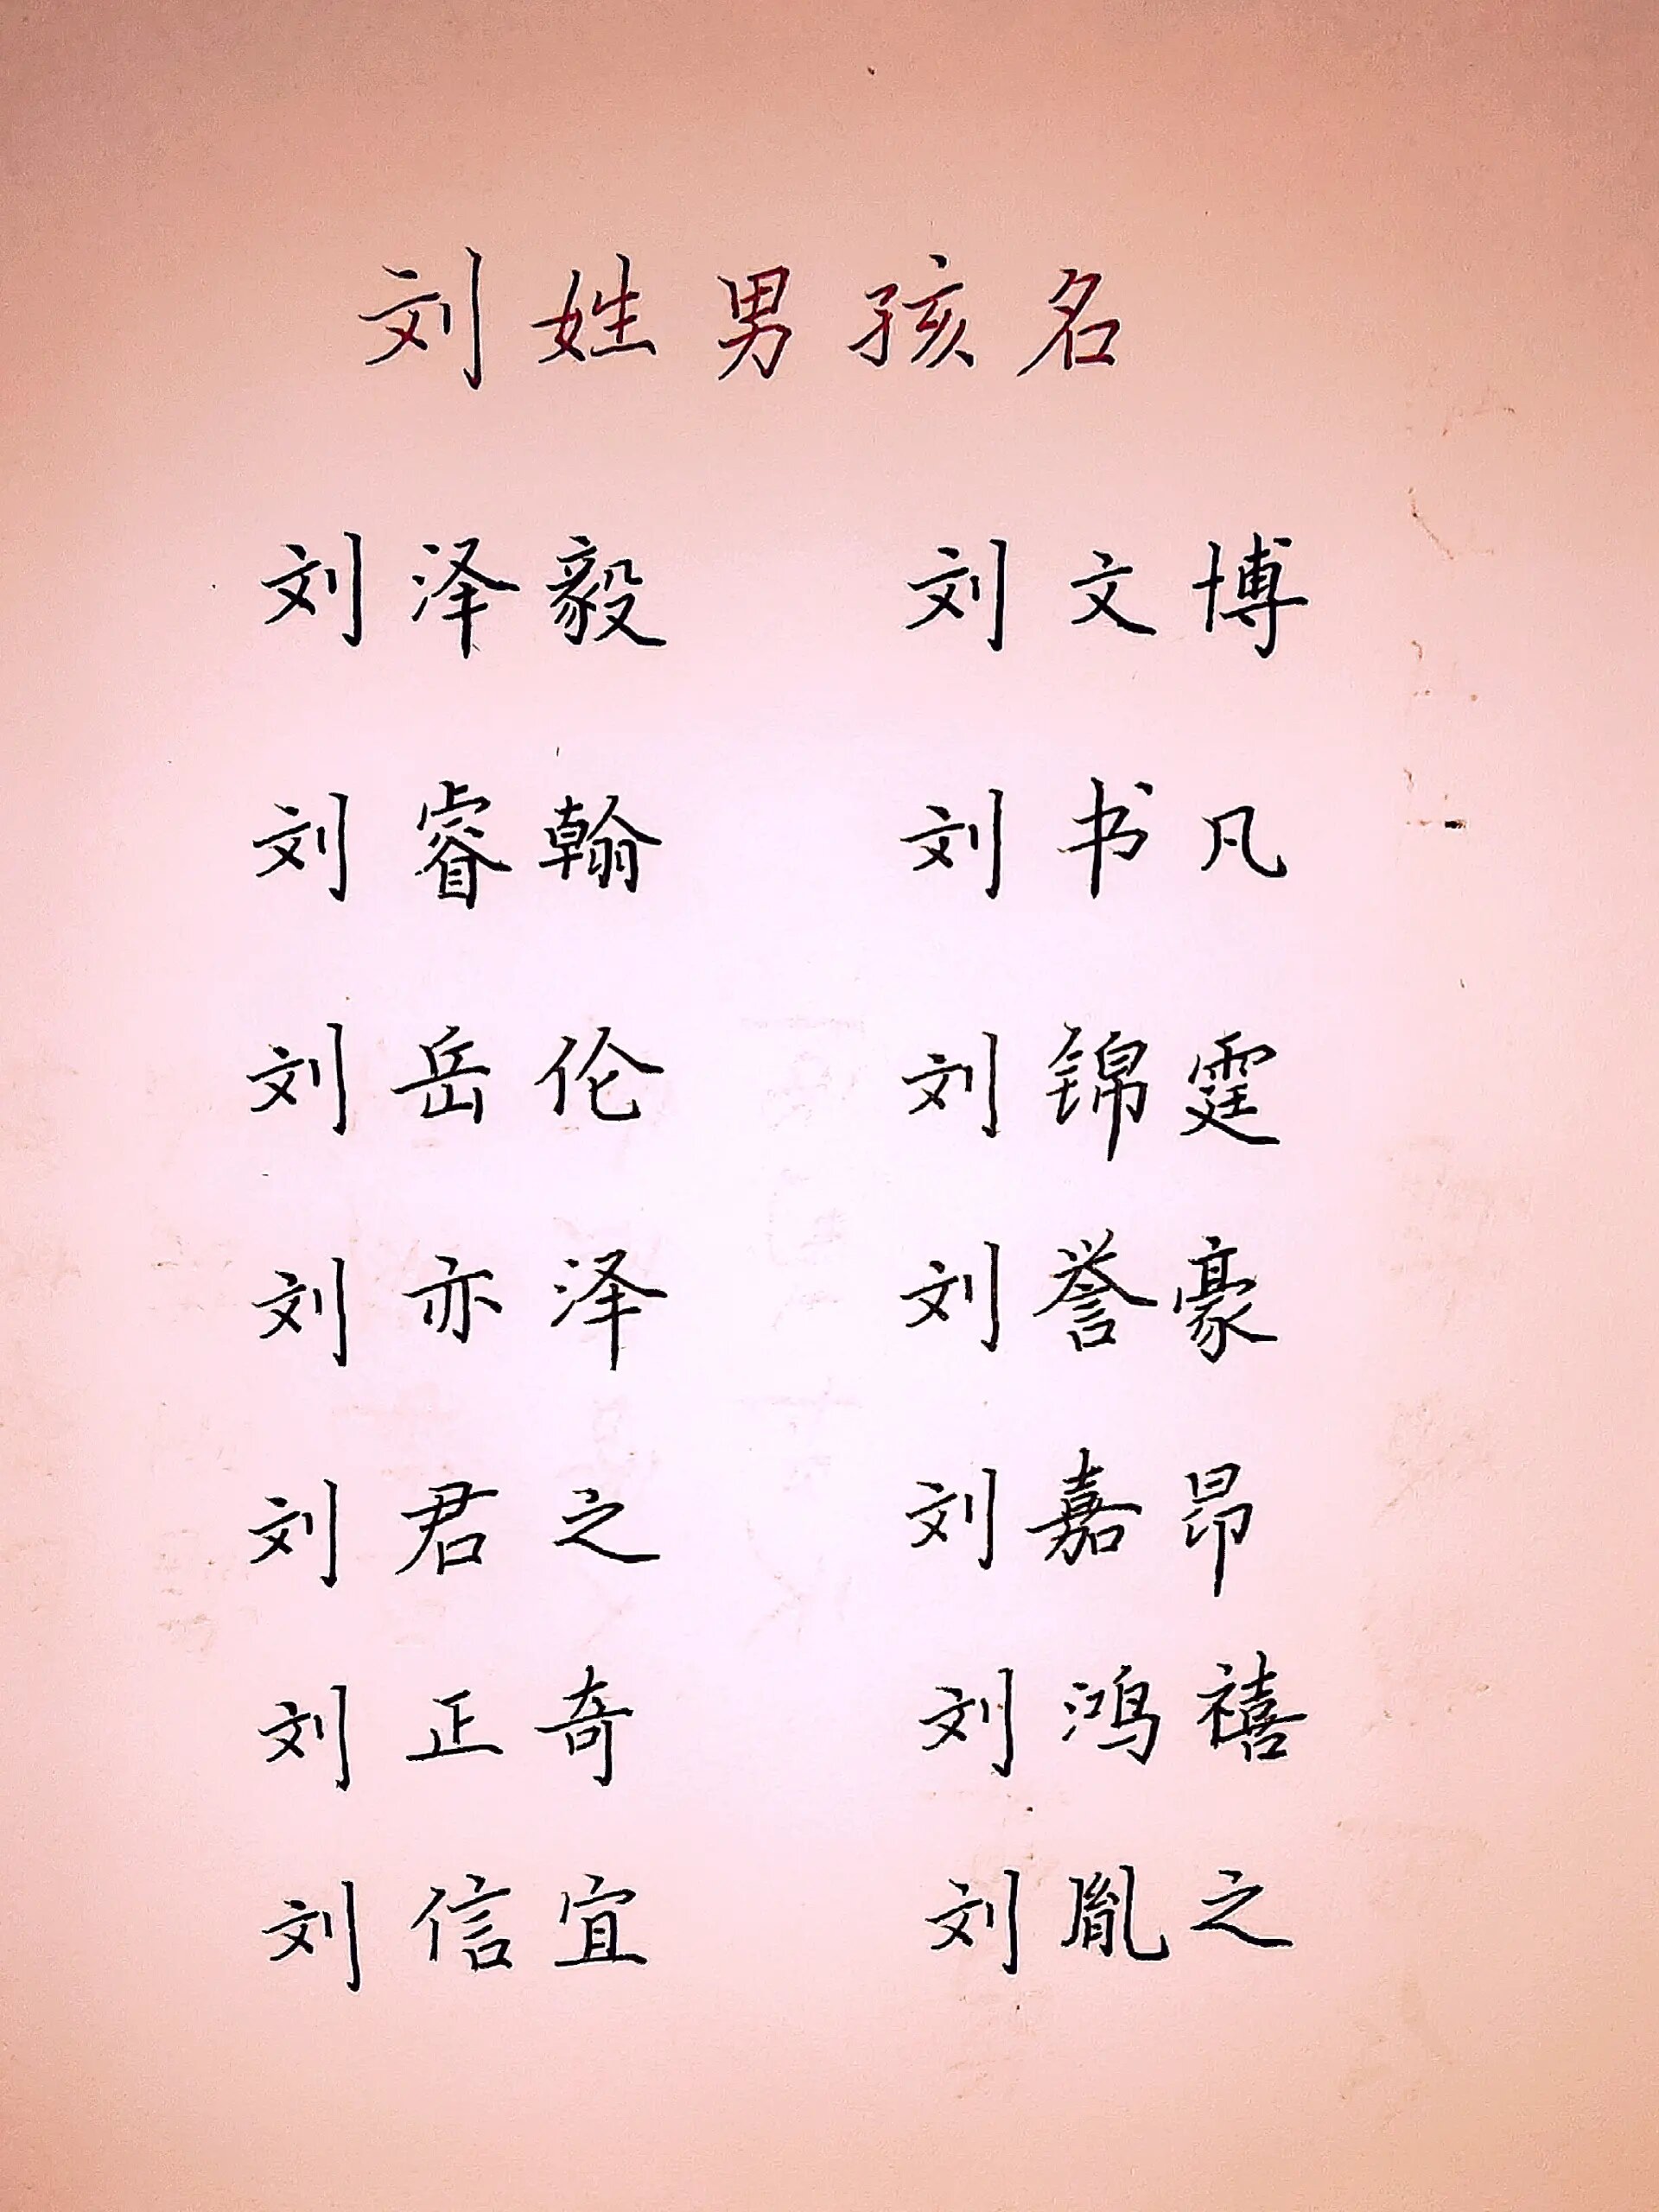 刘姓男孩名
刘泽毅 刘文博
刘睿翰 刘书凡
刘岳伦 刘锦霆
刘亦泽 刘誉豪
刘君之 刘嘉昂
刘正奇 刘鸿禧
刘信宜 刘胤之